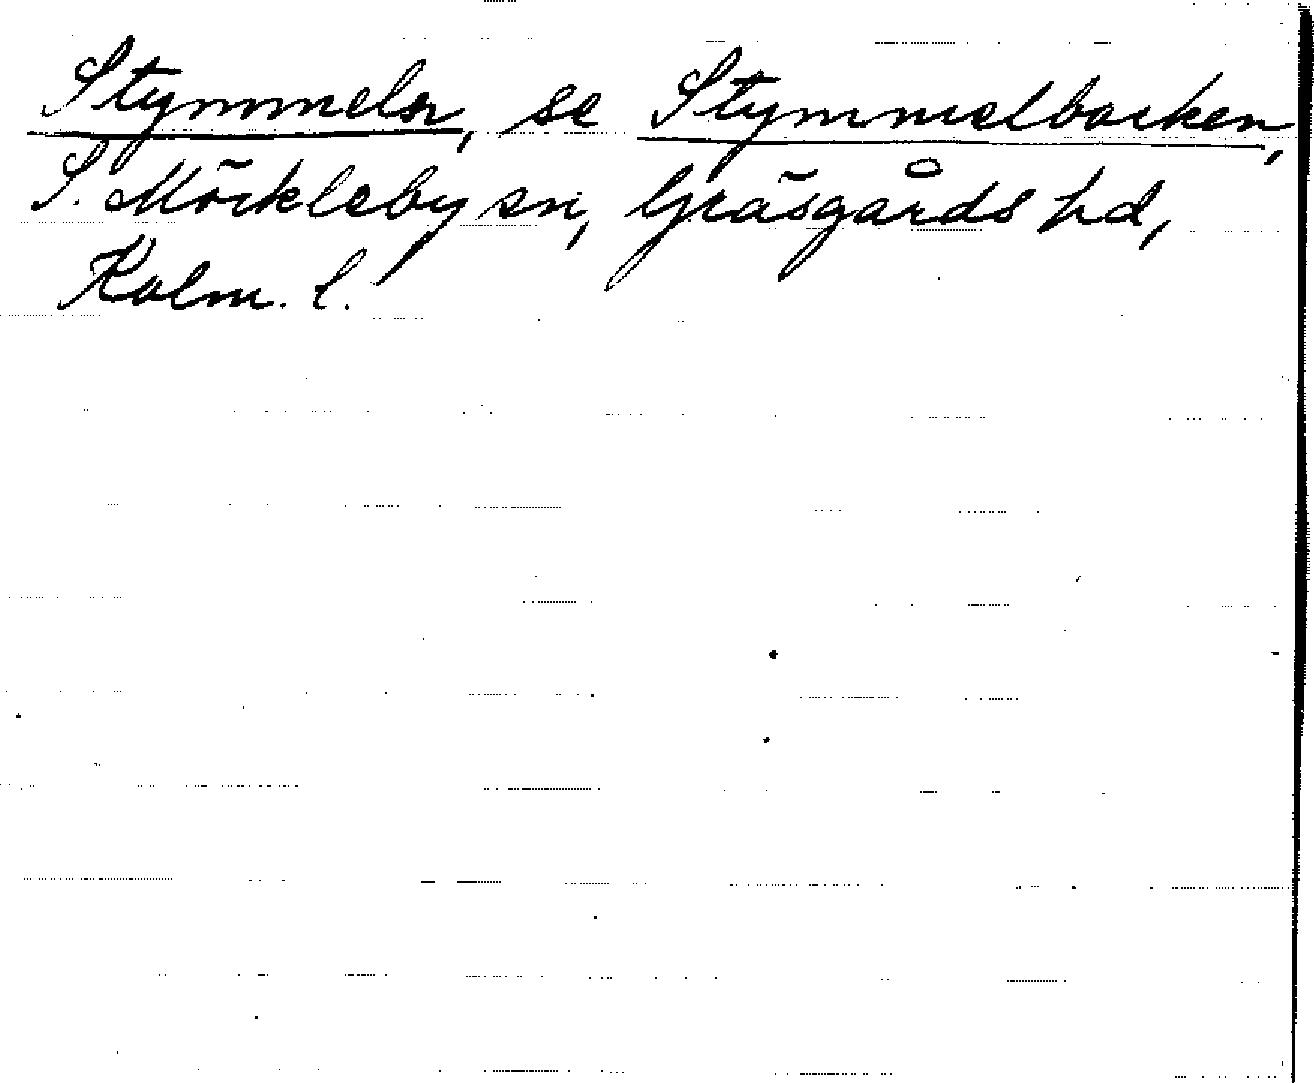 Stymmeln, se Stymmelbacken,
S. Möckleby sn, Gräsgårds hd,
Kalm. l.